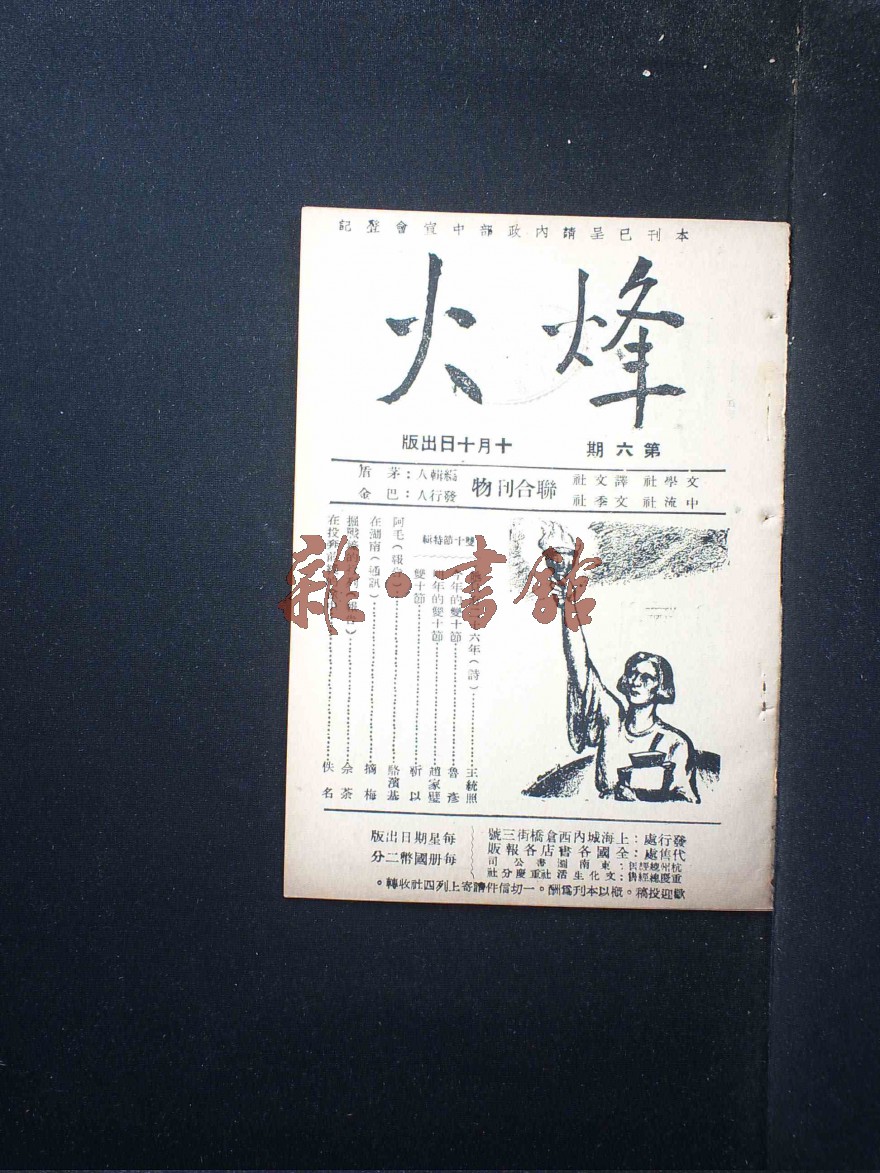 本刊已呈請內政部中宣會登記
烽火
第六期 十月十日出版
文學社 譯文社
中流社 文季社
聯合刊物
編輯人：茅盾
發行人：巴金
雙十節特輯
六年（詩）……王統照
年的雙十節……魯彥
年的雙十節……趙家璧
雙十節……靳以
阿毛（報告）……駱濱基
在湖南（通訊）……摘梅
掘戰壕的……佘茶
在投奔前……佚名
發行處：上海城內西倉橋街三號
代售處：全國各書店各報販
杭州總經售：東南圖書公司
重慶總經售：文化生活社重慶分社
歡迎投稿。概以本刊為酬。一切信件請寄上列四社收轉。
每星期日出版
每冊國幣二分
雜·書館